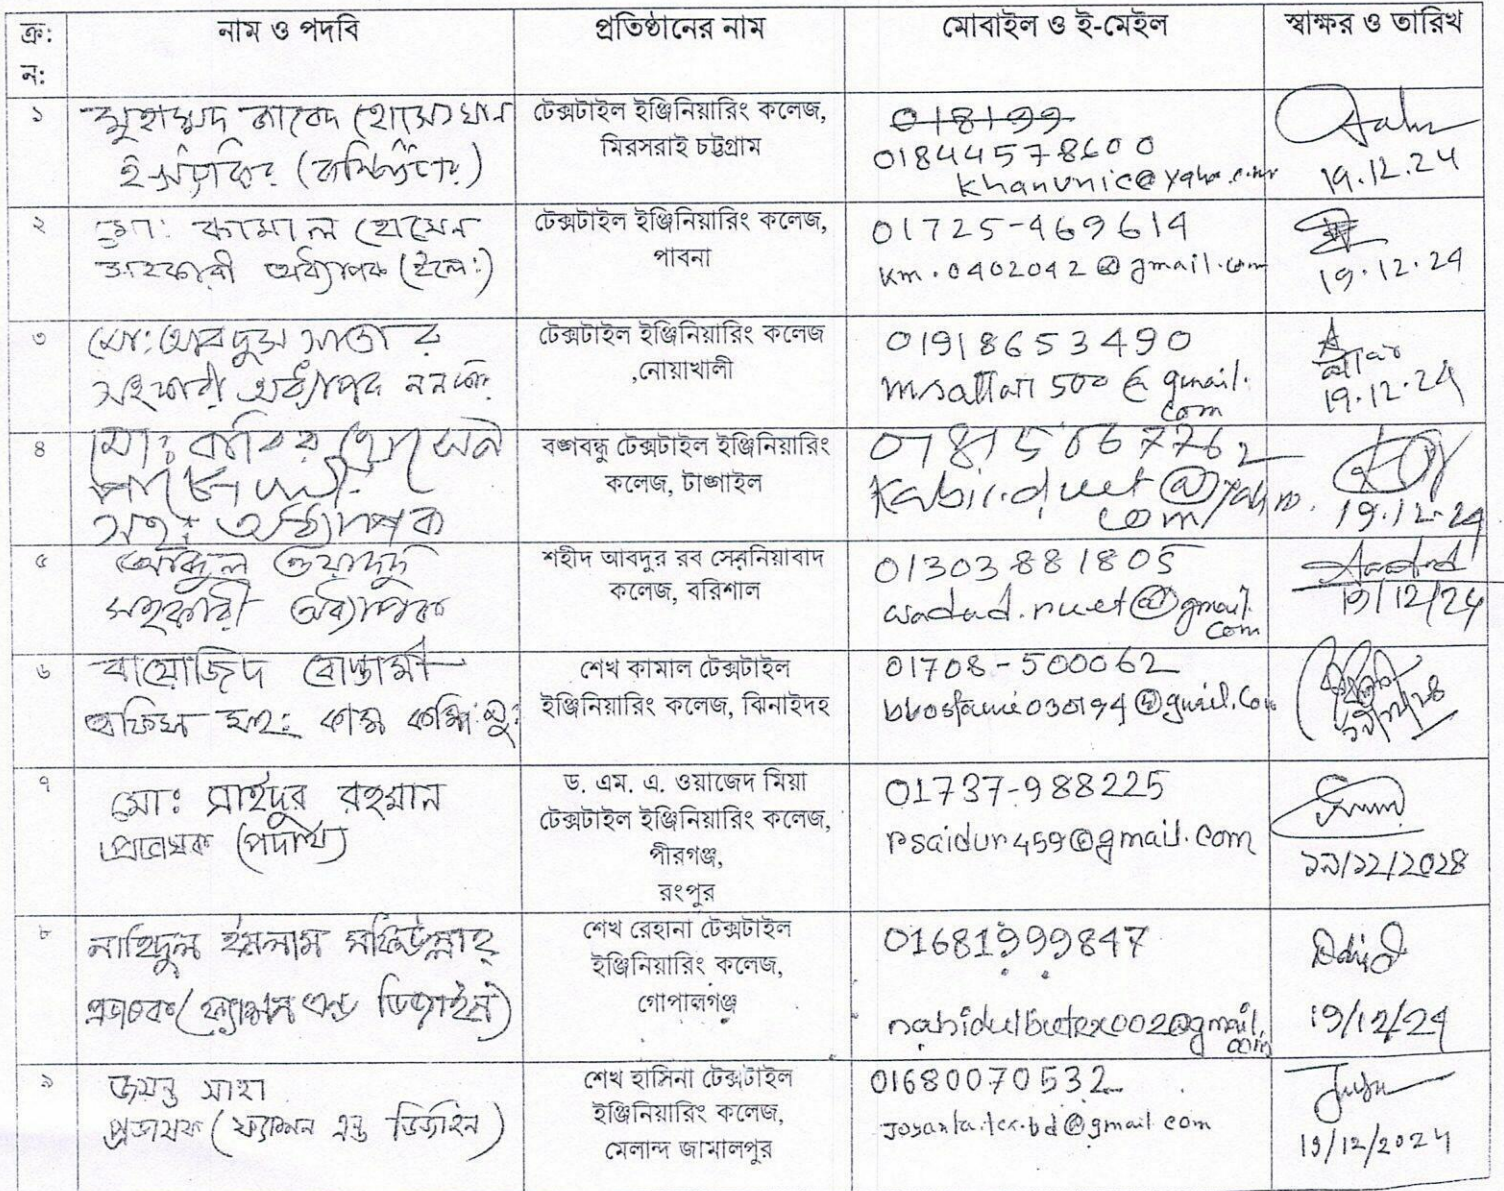 ক্র: ন:
নাম ও পদবি
প্রতিষ্ঠানের নাম
মোবাইল ও ই-মেইল
স্বাক্ষর ও তারিখ
১
মুহাম্মদ জাবেদ হোসেন খান
ইন্সট্রাক্টর (কম্পিউটার)
টেক্সটাইল ইঞ্জিনিয়ারিং কলেজ,
মিরসরাই চট্টগ্রাম
018199
01844578600
khanunic@yahoo.com
19.12.24
২
মো: কামাল হোসেন
সহকারী অধ্যাপক (ইলে:)
টেক্সটাইল ইঞ্জিনিয়ারিং কলেজ,
পাবনা
01725-469614
km.0402042@gmail.com
19.12.24
৩
মো: আবদুস সাত্তার
সহকারী অধ্যাপক ননটেক
টেক্সটাইল ইঞ্জিনিয়ারিং কলেজ
,নোয়াখালী
01918653490
msattar500@gmail.
com
19.12.24
৪
মো: কবির হোসেন
সহ: অধ্যাপক
বঙ্গবন্ধু টেক্সটাইল ইঞ্জিনিয়ারিং
কলেজ, টাঙ্গাইল
kabir.duet@yahoo.
com
19.12.24
৫
আব্দুল ওয়াদুদ
সহকারী অধ্যাপক
শহীদ আবদুর রব সেরনিয়াবাদ
কলেজ, বরিশাল
01303881805
wadud.ruet@gmail.
com
19/12/24
৬
বায়োজিদ বোস্তামী
অফিস সহ: কাম কম্পি: মু:
শেখ কামাল টেক্সটাইল
ইঞ্জিনিয়ারিং কলেজ, ঝিনাইদহ
01708-500062
৭
মো: সাইদুর রহমান
প্রভাষক (পদার্থ)
ড. এম. এ. ওয়াজেদ মিয়া
টেক্সটাইল ইঞ্জিনিয়ারিং কলেজ,
পীরগঞ্জ,
রংপুর
01737-988225
rsaidur459@gmail.com
১৯/১২/২০২৪
৮
নাহিদুল ইসলাম সফিউল্লাহ্
প্রভাষক (ফ্যাশন এন্ড ডিজাইন)
শেখ রেহানা টেক্সটাইল
ইঞ্জিনিয়ারিং কলেজ,
গোপালগঞ্জ
01681999847
nahidulbutex002@gmail.
com
19/12/24
৯
জয়ন্ত সাহা
প্রভাষক (ফ্যাশন এন্ড ডিজাইন)
শেখ হাসিনা টেক্সটাইল
ইঞ্জিনিয়ারিং কলেজ,
মেলান্দ জামালপুর
01680070532
joyanta.tex.bd@gmail.com
19/12/2024